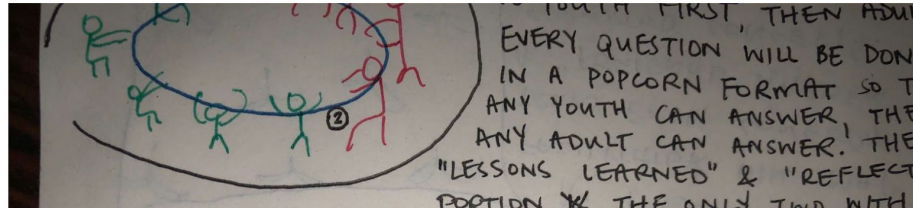 YOUTH FIRST, THEN
EVERY QUESTION WILL BE
IN A POPCORN FORMAT SO
ANY YOUTH CAN ANSWER,
ANY ADULT CAN ANSWER!
"LESSONS LEARNED" & "REFLECT
PORTION THE ONLY TWO WITH
2